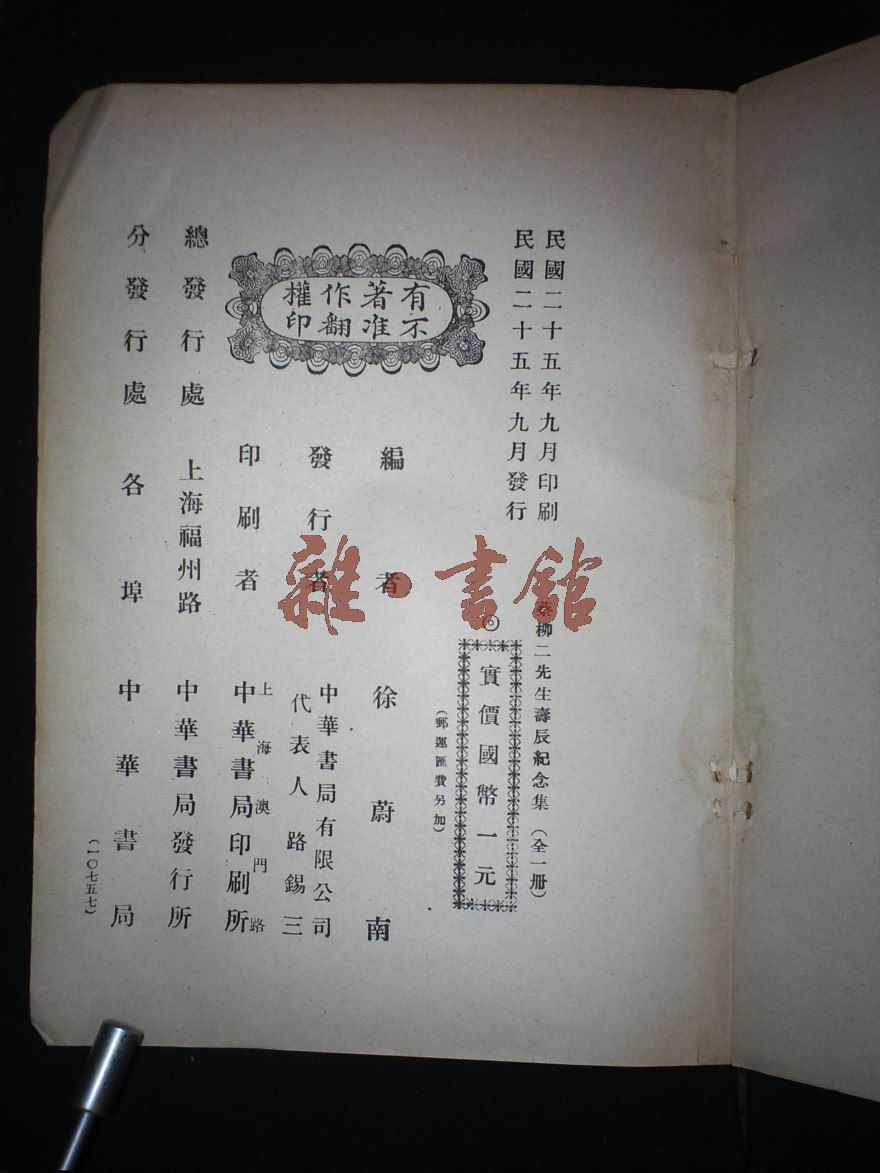 民國二十五年九月印刷
民國二十五年九月發行
蔡柳二先生壽辰紀念集（全一册）
◎實價國幣一元
（郵運匯費另加）
有著作權
不准翻印
編者 徐蔚南
發行者 中華書局有限公司
代表人 路錫三
印刷者 上海澳門路
中華書局印刷所
總發行處 上海福州路 中華書局發行所
分發行處 各埠 中華書局
（一〇七五七）
雜·書館